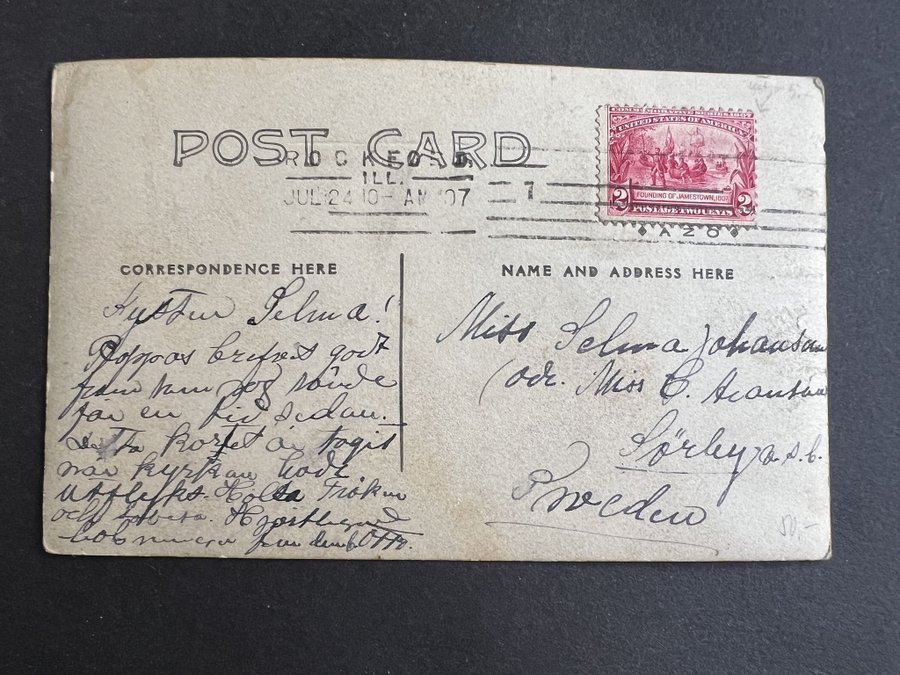 POST CARD
ROCKFORD,
ILL.
JUL 24 10 AM '07
1
UNITED STATES OF AMERICA
2 FOUNDING OF JAMESTOWN, 1607 2
POSTAGE TWO CENTS
AZO
CORRESPONDENCE HERE
NAME AND ADDRESS HERE
Selma!
Pappas brefvet godt
fram som jag sände
for en tid sedan.
Detta kortet är tagit
när kyrkan hade
utflykt. Helsa Fröken
och
från Otto.
Miss Selma Johanson
(adr. Miss C. Aronson
Sörby a.s.b.
Sweden
50-